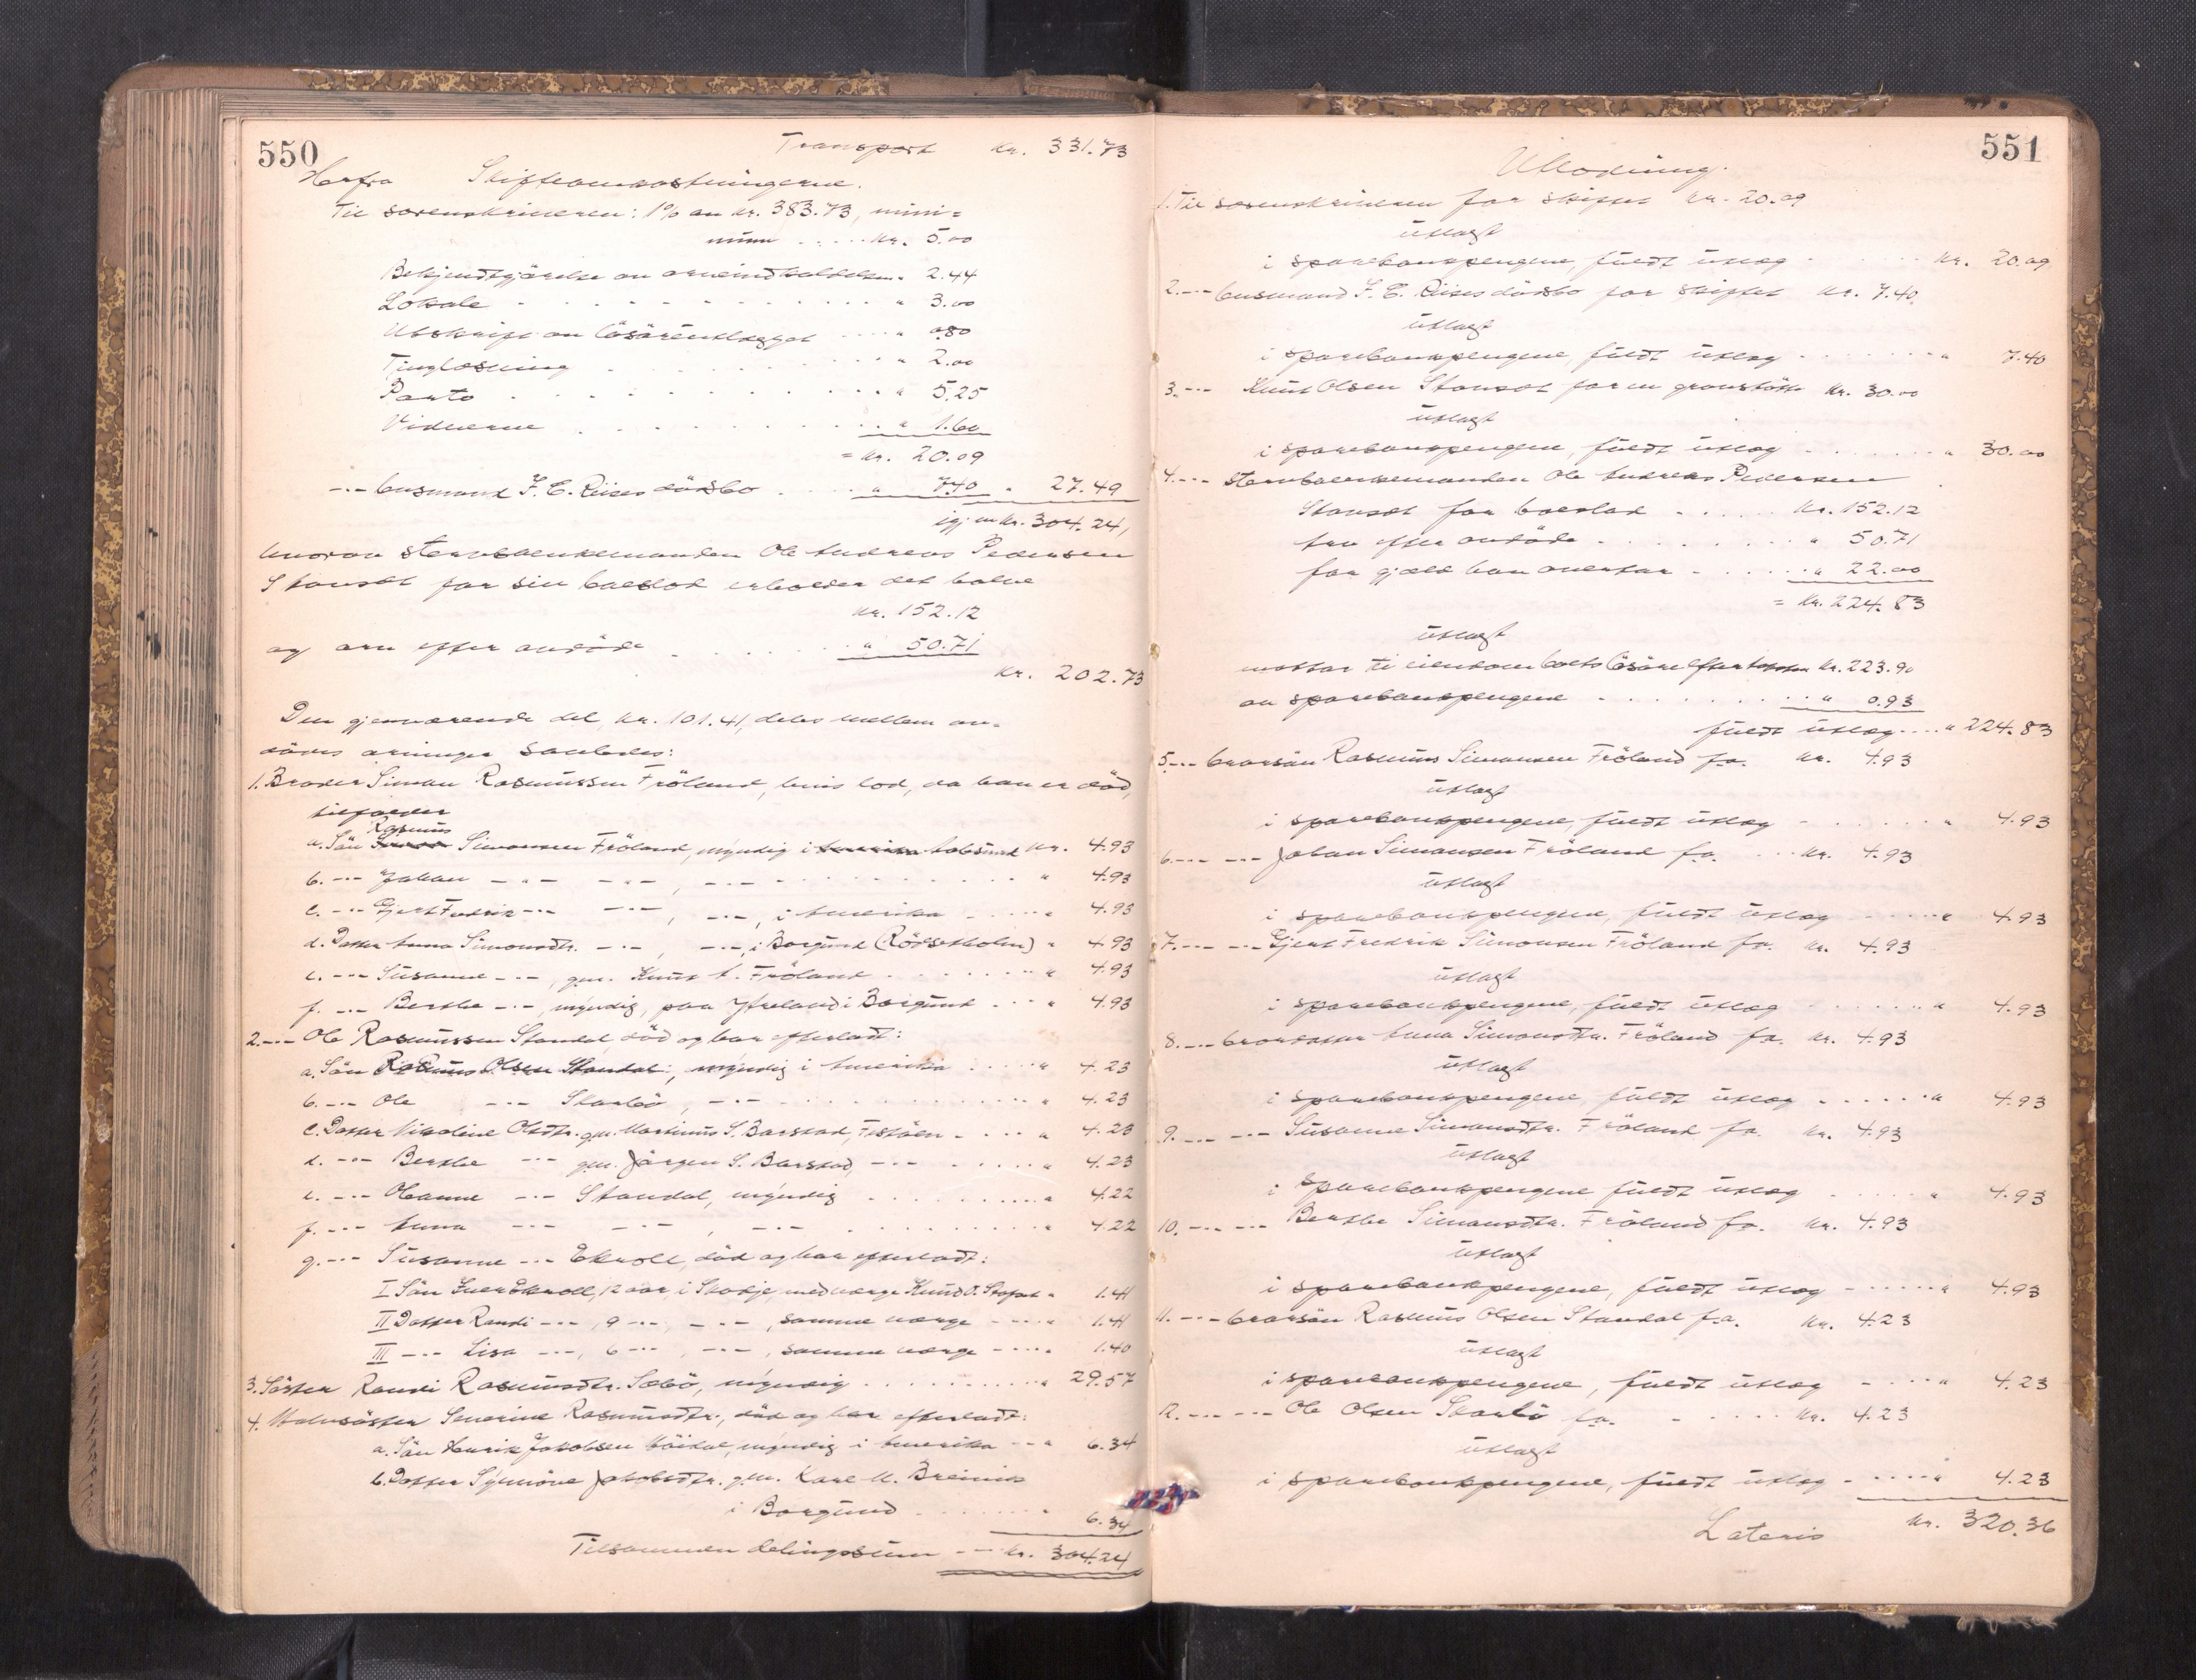 550
Transport Kr. 331.73
Herfra Skifteomkostningerne.
Til sorenskriveren: 1% av kr. 383.73, mini=
mum .... Kr. 5.00
Bekjendtgjörelse av arveindkaldelsen " 2.44
Lokale " 3.00
Utskrift av lösöreutlægget " 0.80
Tinglæsning " 2.00
Porto " 5.25
Vidnerne " 1.60
= Kr. 20.09
-"- lensmand F. E. Riises dödsbo " 7.40 " 27.49
igjen Kr. 304.24,
hvorav stervboenkemanden Ole Andreas Pedersen
Standal for sin boeslod erholder det halve
Kr. 152.12
og arv efter avdöde " 50.71
Kr. 202.73
Den gjenværende del, kr. 101.41, deles mellem av-
dödes arvinger saaledes:
1. Broder Simon Rasmussen Fröland, hvis lod, da han er död,
tilfalder
Rasmus
a. Sön Simonsen Fröland, myndig i Amerika Aalesund Kr. 4.93
b. -"- Johan -"- -"- , -"- " 4.93
c. -"- Gjert Fredrik -"- -"- , -"- , i Amerika " 4.93
d. Datter Anna Simonsdtr. -"- , -"- , i Borgund (Rödsetholm) " 4.93
e. -"- Susanne -"- , gm. Knut A. Fröland " 4.93
f. -"- Berthe -"- , myndig, paa Yttreland i Borgund " 4.93
2. -"- Ole Rasmussen Standal, död og har efterladt:
a. Sön Rasmus Olsen Standal, myndig i Amerika " 4.23
b. -"- Ole -"- Skarbö, -"- " 4.23
c. Datter Nikoline Olsdtr. gm. Martinus S. Barstad, Festöen " 4.23
d. -"- Berthe -"- gm. Jörgen S. Barstad, -"- " 4.23
e. -"- Oleanne -"- Standal, myndig " 4.22
f. -"- Anna -"- -"- , -"- " 4.22
g. -"- Susanne -"- Ekroll, död og har efterladt:
I Sön Iver Ekroll, 12 aar, i Skodje, med værge Knud O. " 1.41
II Datter Randi -"- , 9 -"- , -"- , samme værge " 1.41
III -"- Lisa -"- , 6 -"- , -"- , samme værge " 1.40
3. Söster Randi Rasmusdtr. Sæbö, myndig " 29.57
4. Halvsöster Severine Rasmusdtr., död og har efterladt:
a. Sön Henrik Jakobsen, myndig i Amerika " 6.34
b. Datter Synnöve Jakobsdtr. gm. Karl M. Breivik
i Borgund " 6.34
Tilsammen delingssum -- Kr. 304.24
551
Utlodning.
1. Til sorenskriveren for skiftet kr. 20.09
utlagt
i sparebankpengene, fuldt utlæg Kr. 20.09
2. -"- lensmand F. E. Riises dödsbo for skiftet Kr. 7.40
utlagt
i sparebankpengene, fuldt utlæg " 7.40
3. -"- Knut Olsen Standal for en gravstötte Kr. 30.00
utlagt
i sparebankpengene, fuldt utlæg " 30.00
4. -"- stervboenkemanden Ole Andreas Pedersen
Standal for boeslod Kr. 152.12
arv efter avdöde " 50.71
for gjæld han overtar " 22.00
= Kr. 224.83
utlagt
mottar til eiendom boets lösöre efter taksten Kr. 223.90
av sparebankpengene " 0.93
fuldt utlæg " 224.83
5. -"- brorsön Rasmus Simonsen Fröland f.a. Kr. 4.93
utlagt
i sparebankpengene, fuldt utlæg " 4.93
6. -"- -"- Johan Simonsen Fröland f.a. Kr. 4.93
utlagt
i sparebankpengene, fuldt utlæg " 4.93
7. -"- -"- Gjert Fredrik Simonsen Fröland f.a. Kr. 4.93
utlagt
i sparebankpengene, fuldt utlæg " 4.93
8. -"- brordatter Anna Simonsdtr. Fröland f.a. Kr. 4.93
utlagt
i sparebankpengene fuldt utlæg " 4.93
9. -"- -"- Susanne Simonsdtr. Fröland f.a. Kr. 4.93
utlagt
i sparebankpengene fuldt utlæg " 4.93
10. -"- -"- Berthe Simonsdtr. Fröland f.a. Kr. 4.93
utlagt
i sparebankpengene, fuldt utlæg " 4.93
11. -"- brorsön Rasmus Olsen Standal f.a. Kr. 4.23
utlagt
i sparebankpengene, fuldt utlæg " 4.23
12. -"- -"- Ole Olsen Skarbö f.a. Kr. 4.23
utlagt
i sparebankpengene, fuldt utlæg " 4.23
Lateris Kr. 320.36